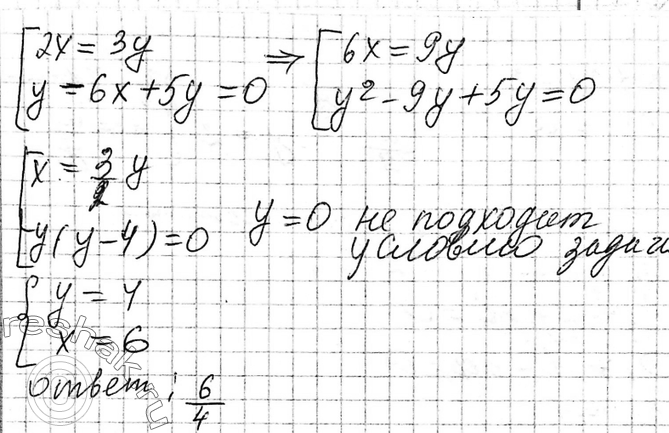 2x = 3y ⇒ 6x = 9y
y - 6x + 5y = 0 y² - 9y + 5y = 0
x = 3/2 y
y(y - 4) = 0 y = 0 не подходит
условию задачи
y = 4
x = 6
ответ: 6/4
reshak.ru